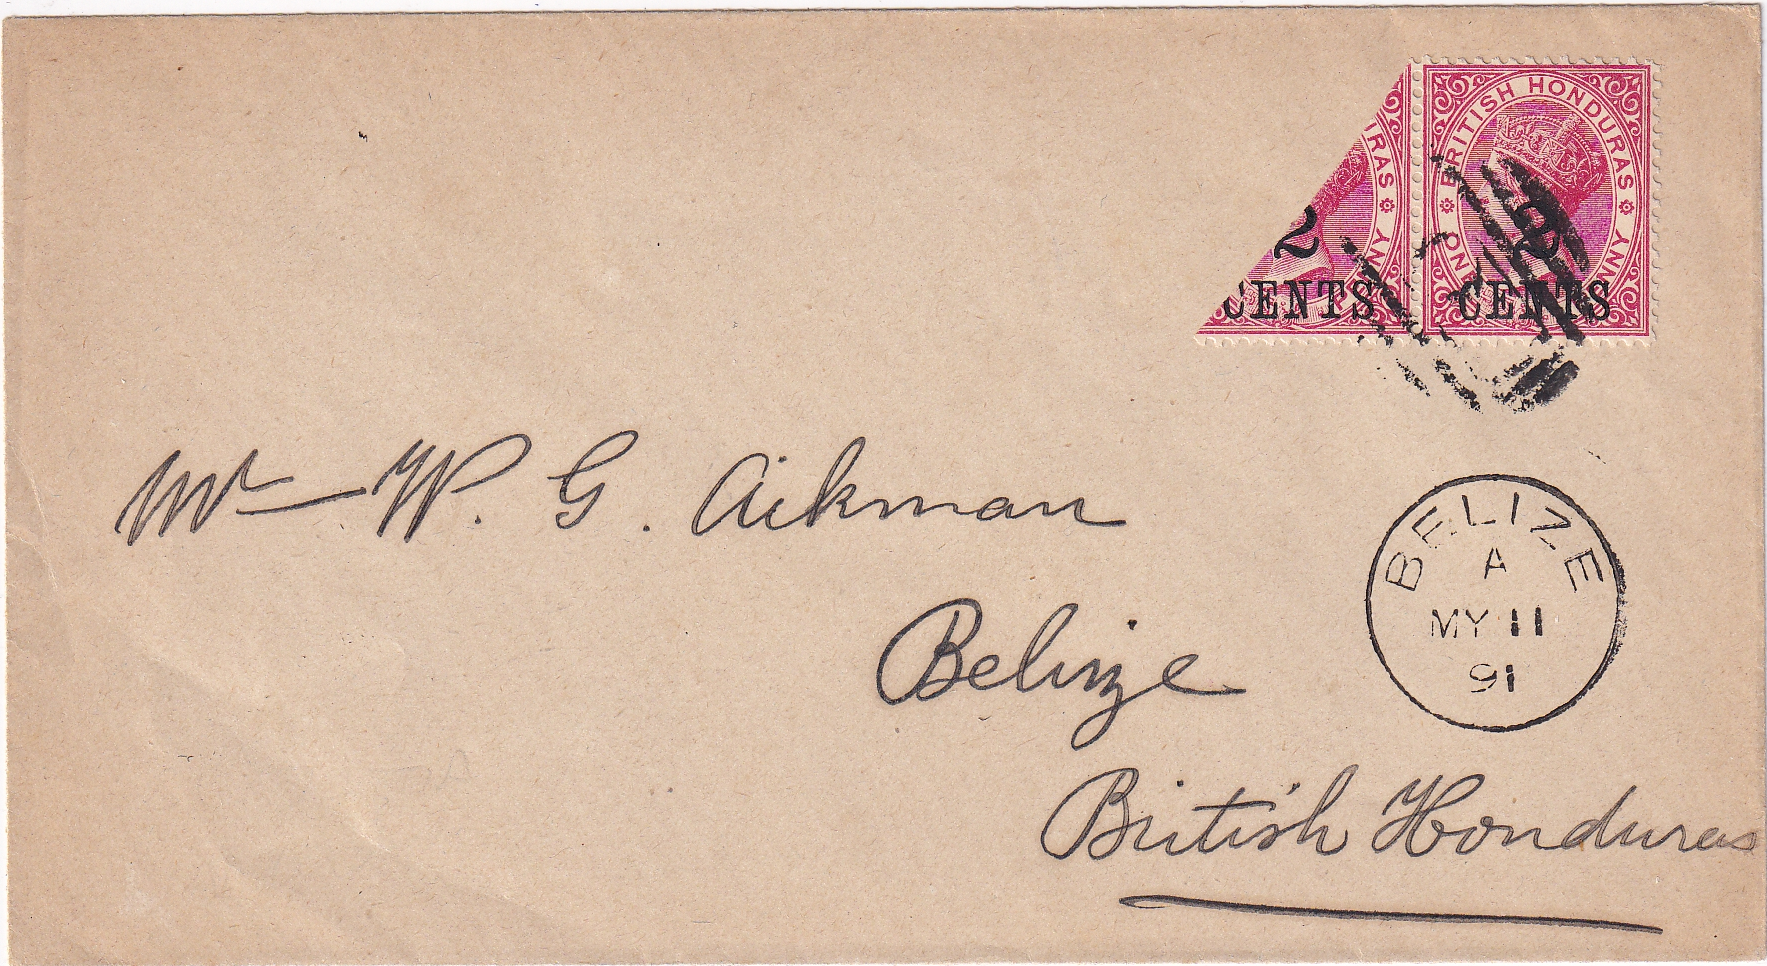 URAS
NNY
2
CENTS
BRITISH HONDURAS
ONE PENNY
2
CENTS
Mr W. G. Aikman
Belize
British Honduras
BELIZE
A
MY 11
91